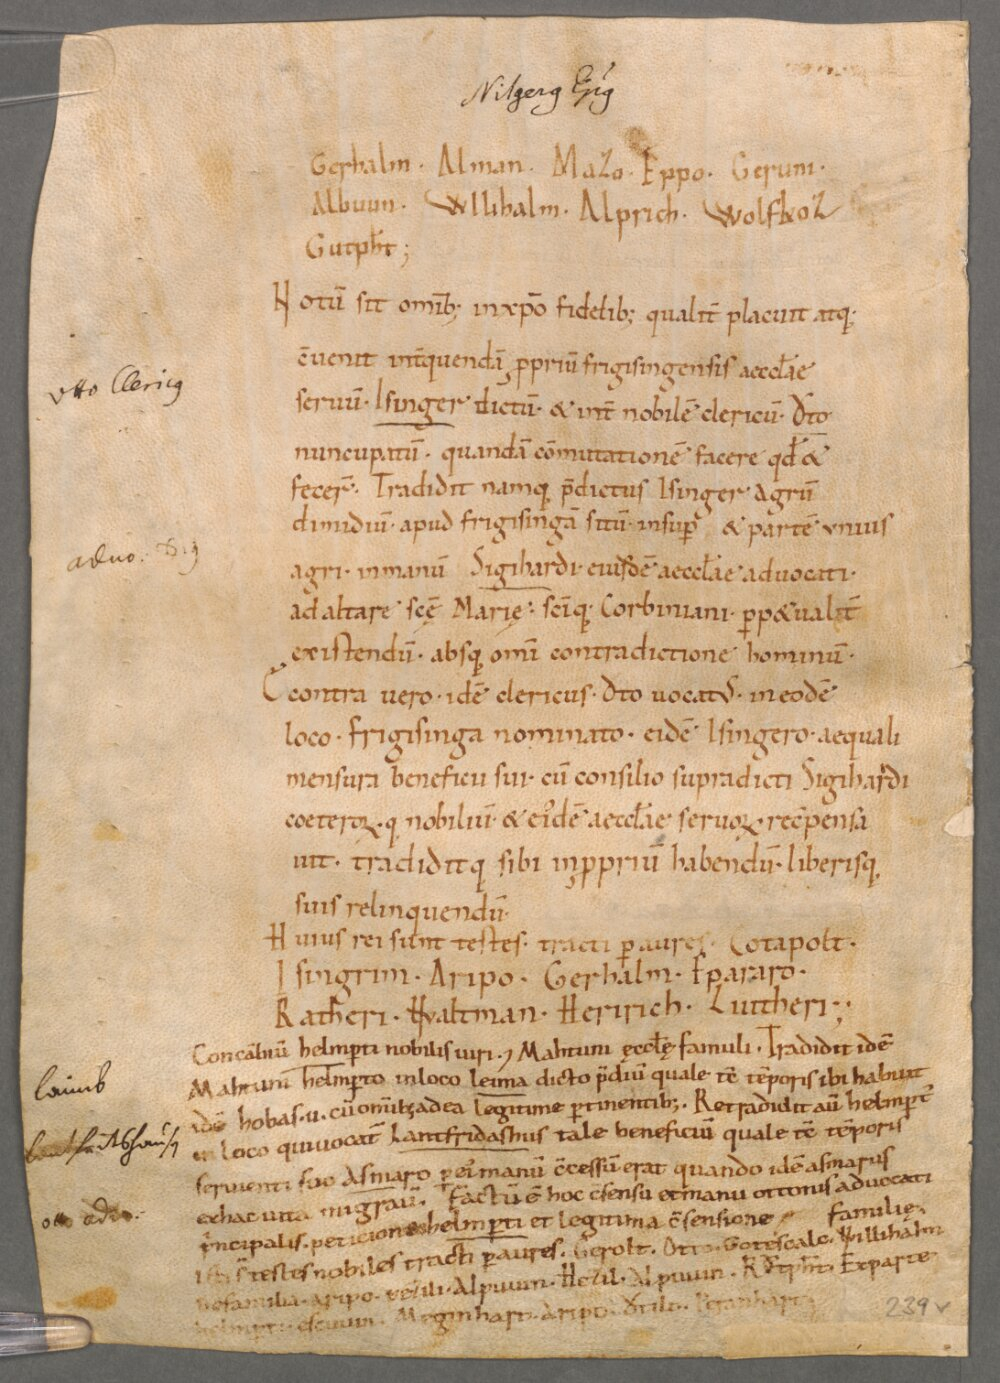 Nitgerg Epīg
Gerhalm· Alman· Mazo· Eppo· Geruni·
Albuun· Willihalm· Alprich· Wolfkoz
Gutpħt;
Notū sit omīb; inxp̄o fidelib; qualit̄ placuit atq;
c̄uenit int̄quendā p̱priū frigisingensis aecclae
Otto Clericꝰ
seruū· Isinger dictū· & int̄ nobilē clericū· Otō
nuncupatū· quandā cōmutationē facere qđ &
fecer̄· Tradidit namq; p̄dictus Isinger Agrū
dimidiū· apud frigisingā sitū· insup̱ & partē unius
aduo:
agri· inmanū Sigihardi· eiusdē aecclae aduocati·
adaltare sc̄ę Marię· sc̄iq; Corbiniani· p̱p&ualit̄
existendū· absq; om̄i contradictione hominū·
Econtra uero· idē clericus· Oto uocatꝰ· ineodē
loco· frigisinga nominato· eidē Isingero· aequali
mensura beneficii sui· cū consilio supradicti Sigihardi
coeteroꝝ·q; nobiliū· & eiꝰdē aecclae seruoꝝ· rec̄pensa
uit· tradiditq; sibi inp̱priū habendū· liberisq;
suis relinquendū·
Huius rei sunt testes· tracti p̱aures· Cotapolt·
Isingrim· Aripo· Gerhalm· Ep̱araro·
Ratheri· Waltman· Heririch· Liutheri;
Concābiū helmp̱ti nobilis uiri· & Mahtuni ęcclę famuli· Tradidit idē
Mahtuni helmp̱to inloco leima dicto p̄diū quale tc̄ tēporis ibi habuit
laimb
idē hobas·u· cū omīb; adea legitime p̱tinentib;· Retradidit aū helmp̱t
in loco quiuocat̄ Lantfridashus tale beneficiū quale tc̄ tēporis
seruienti suo Asmaro p̱ eiꝰ manū c̄cessū erat quando idē asmarus
exhac uita migrauī· Factū ē hoc c̄sensu et manu ottonis aduocati
otto aduo:
p̄ncipalis· peticione helmp̱ti et legitima c̄sensione familię·
Isti s̄ testes nobiles tracti p̱aures· Gerolt· Otto· Gotescalc· Willihalm
defamilia· aripo· Alpuuin· Hezil· Alpuuin· Exparte
helmp̱ti· Meginhart· Aripo·
239 v